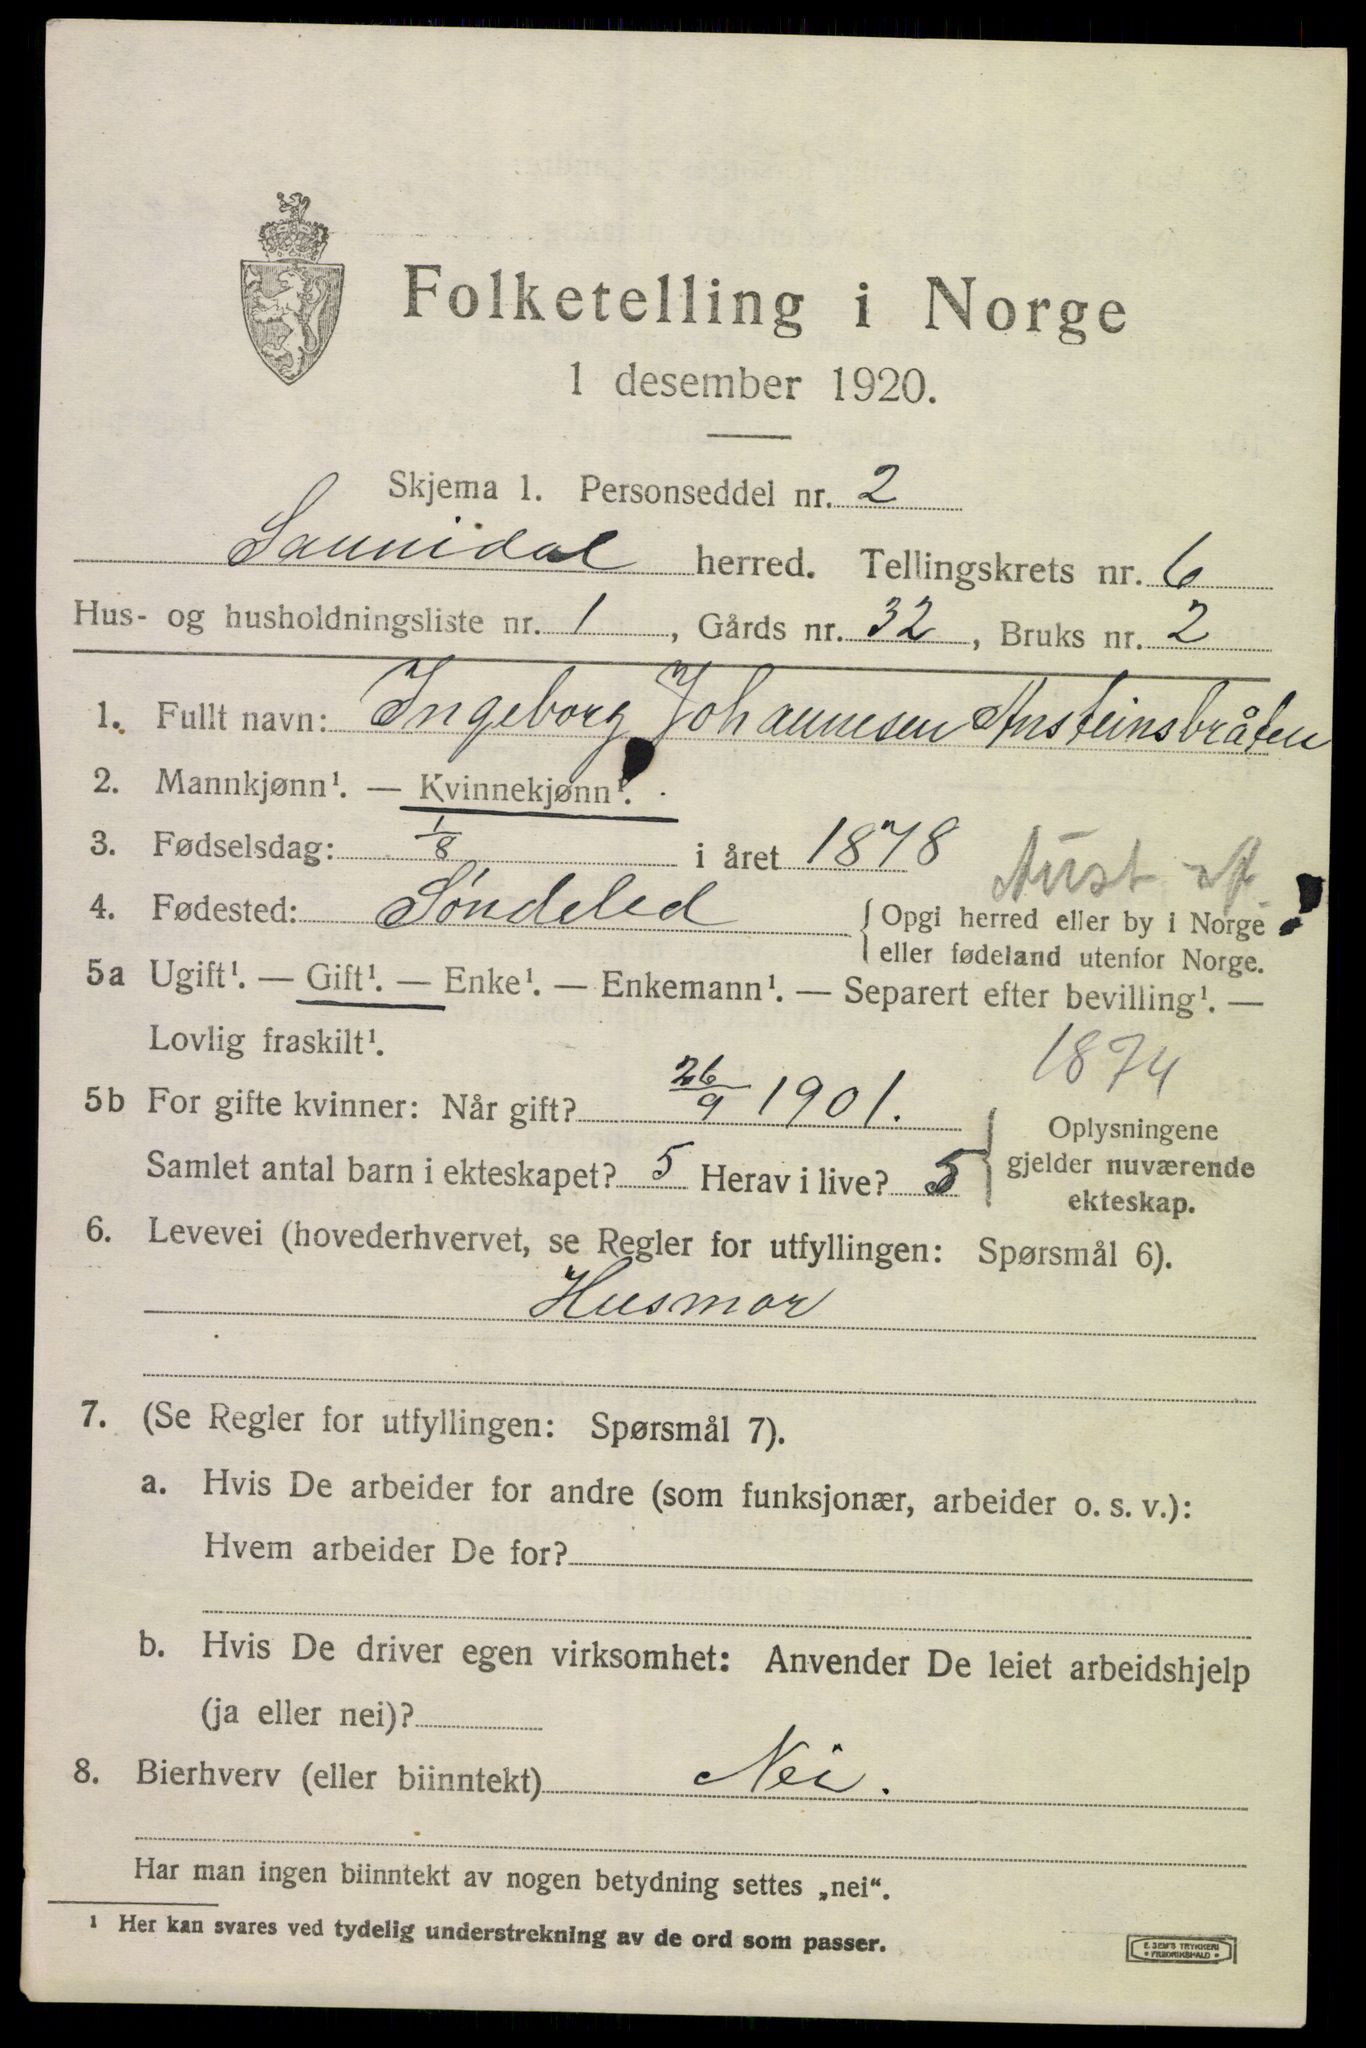 Folketelling i Norge
1 desember 1920.
Skjema 1. Personseddel nr. 2
Sannidal herred. Tellingskrets nr. 6
Hus- og husholdningsliste nr. 1, Gårds nr. 32, Bruks nr. 2
1. Fullt navn: Ingeborg Johannesen Ansteinsbråten
2. Mannkjønn¹. — Kvinnekjønn¹.
3. Fødselsdag: 1/8 i året 1878
Aust
4. Fødested: Søndeled { Opgi herred eller by i Norge
eller fødeland utenfor Norge.
5a Ugift¹. — Gift¹. — Enke¹. — Enkemann¹. — Separert efter bevilling¹. —
Lovlig fraskilt¹.
1874
5b For gifte kvinner: Når gift? 26/9 1901.
Samlet antal barn i ekteskapet? 5 Herav i live? 5
Oplysningene
gjelder nuværende
ekteskap.
6. Levevei (hovederhvervet, se Regler for utfyllingen: Spørsmål 6).
Husmor
7. (Se Regler for utfyllingen: Spørsmål 7).
a. Hvis De arbeider for andre (som funksjonær, arbeider o. s. v.):
Hvem arbeider De for?
b. Hvis De driver egen virksomhet: Anvender De leiet arbeidshjelp
(ja eller nei)?
8. Bierhverv (eller biinntekt) Nei.
Har man ingen biinntekt av nogen betydning settes „nei“.
¹ Her kan svares ved tydelig understrekning av de ord som passer.
E. SEM'S TRYKKERI
* FREDRIKSHALD *